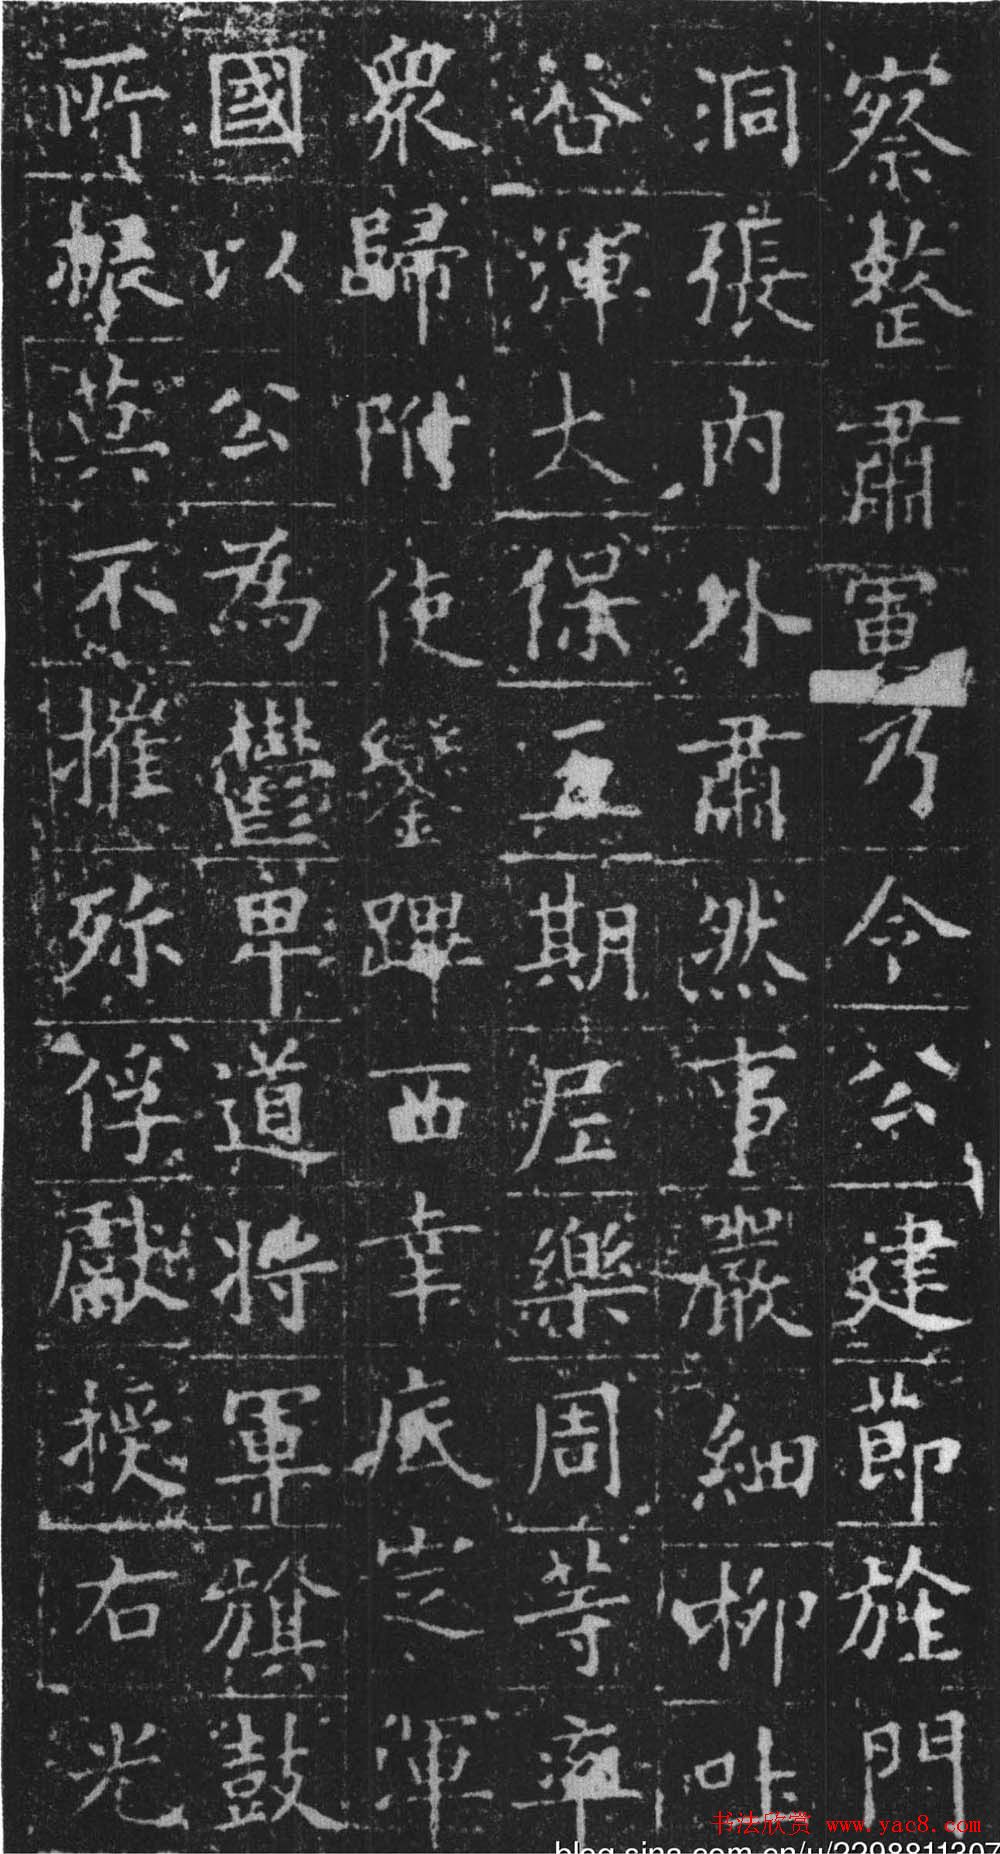 察整肅軍乃令公建節旌門
洞張内外肅然事嚴細柳吐
谷渾大保五期尼樂周等率
衆歸附使鑾蹕西幸底定渾
國以公為欝卑道將軍旗鼓
所振莫不摧殄俘獻授右光
书法欣赏 www.yac8.com